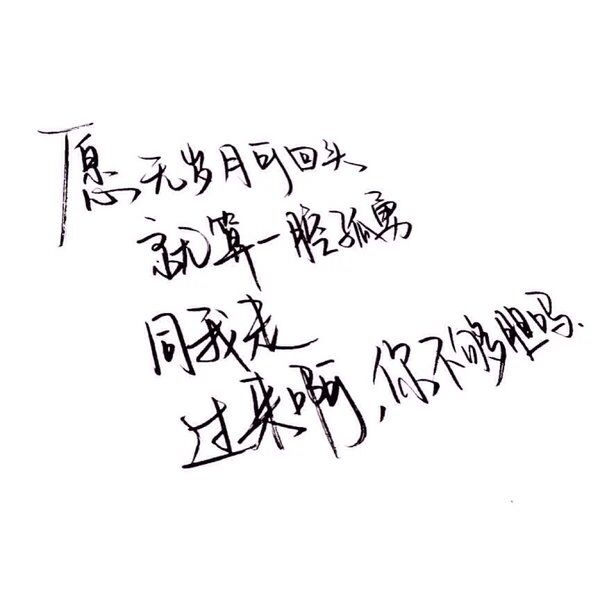 愿无岁月可回头
就算一腔孤勇
同我走
过来啊,你不够胆吗.